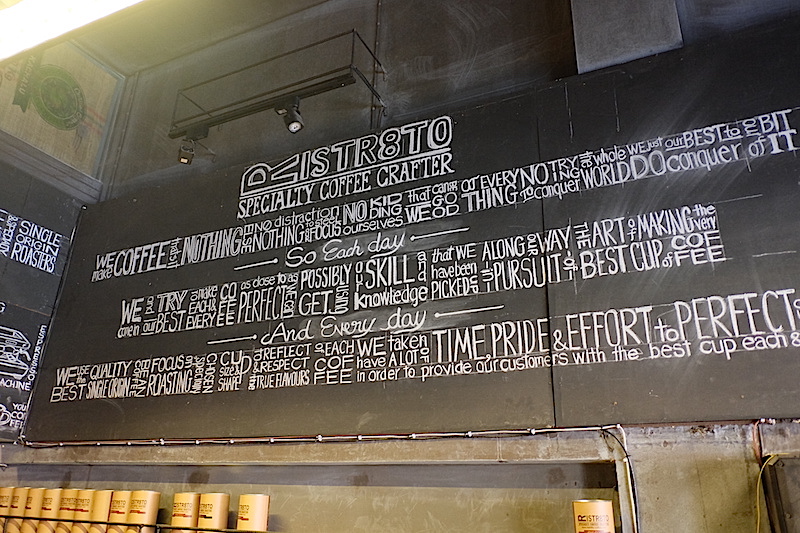 RISTR8TO
SPECIALTY COFFEE CRAFTER
WE make COFFEE that's just NOTHING ELSE NO distraction NOTHING to steer FOCUS ourselves NO KIDDING WE that can't GO OD or EVERYNOTHING TRYING to conquer the whole WORLD WE just DO our BEST to conquer our BIT of IT
So Each day
WE come in and our TRY BEST to make EACH & EVERY COFFEE as close to as PERFECT as WE can POSSIBLY GET with our SKILL and Knowledge that WE have been PICKED UP ALONG our WAY in the PURSUIT of THE ART of MAKING the very BEST CUP of COFFEE
And Every day
WE use the BEST QUALITY SINGLE ORIGIN COFFEE BEAN FOCUS on ROASTING CHOSEN CUP size & SHAPE and to REFLECT & RESPECT TRUE FLAVOURS of EACH COFFEE WE have taken A LOT of TIME, PRIDE & EFFORT to PERFECT
in order to provide our customers with the best cup each &
SINGLE
ORIGIN
ROASTERS
MACHINE
RISTR8TO